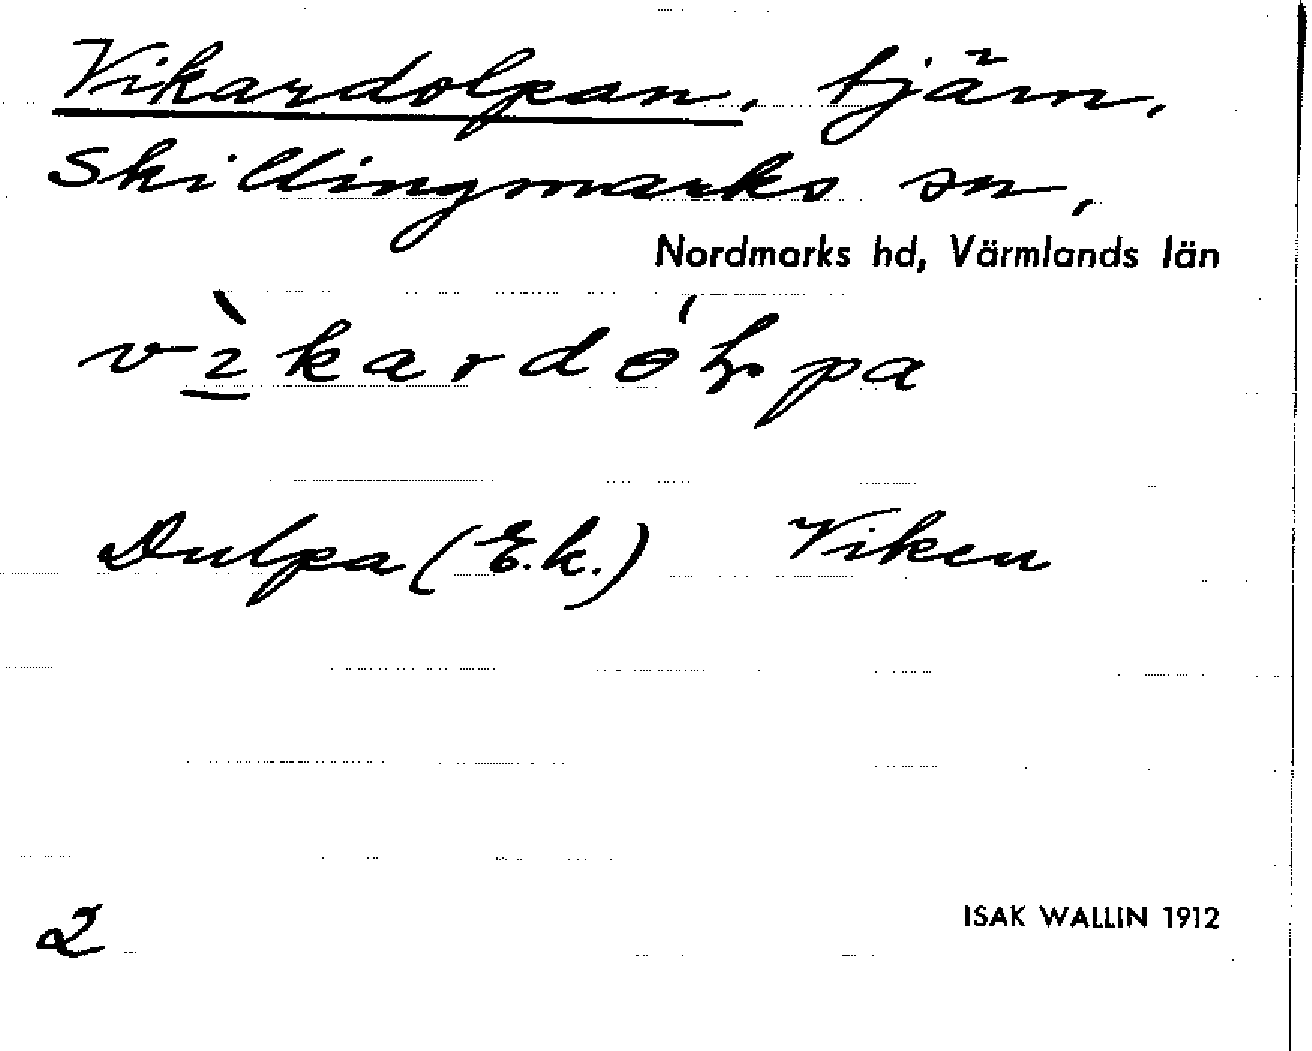 Vikardolpan, tjärn,
Skillingmarks sn,
Nordmarks hd, Värmlands län
vìkardóƚpa
Dulpa (E.k.) Viken
2
ISAK WALLIN 1912